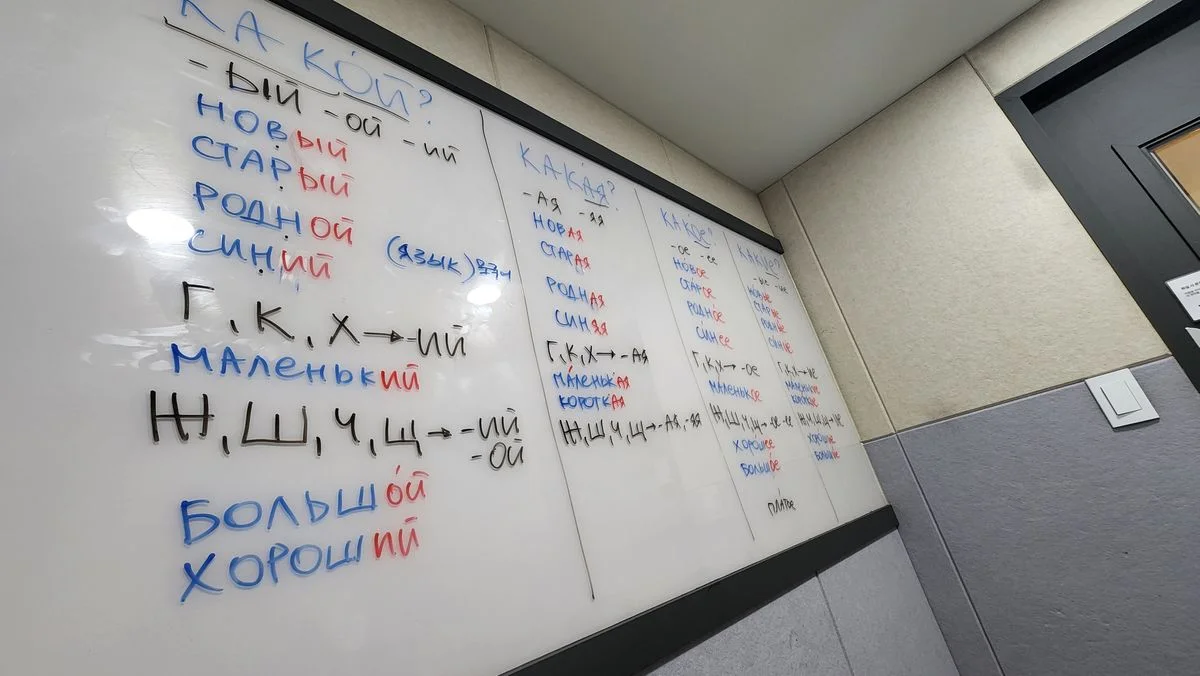 КАКО́Й?
-ЫЙ -ОЙ -ИЙ
НОВЫЙ
СТАРЫЙ
РОДНОЙ
СИНИЙ
(ЯЗЫК)
Г, К, Х → -ИЙ
МАЛЕНЬКИЙ
Ж, Ш, Ч, Щ → -ИЙ
-ОЙ
БОЛЬШО́Й
ХОРОШИЙ
КАКАЯ?
-АЯ -ЯЯ
НОВАЯ
СТАРАЯ
РОДНАЯ
СИНЯЯ
Г, К, Х → -АЯ
МА́ЛЕНЬКАЯ
КОРОТКАЯ
Ж, Ш, Ч, Щ → -АЯ, -ЯЯ
КАКОЕ?
-ОЕ -ЕЕ
НОВОЕ
СТАРОЕ
РОДНОЕ
СИНЕЕ
Г, К, Х → -ОЕ
МАЛЕНЬКОЕ
Ж, Ш, Ч, Щ → -ОЕ -ЕЕ
ХОРОШЕЕ
БОЛЬШОЕ
ПЛАТЬЕ
КАКИЕ?
-ЫЕ -ИЕ
НОВЫЕ
СТАРЫЕ
РОДНЫЕ
СИНИЕ
Г, К, Х → ИЕ
МАЛЕНЬКИЕ
КОРОТКИЕ
Ж, Ш, Ч, Щ → ИЕ
ХОРОШИЕ
БОЛЬШИЕ